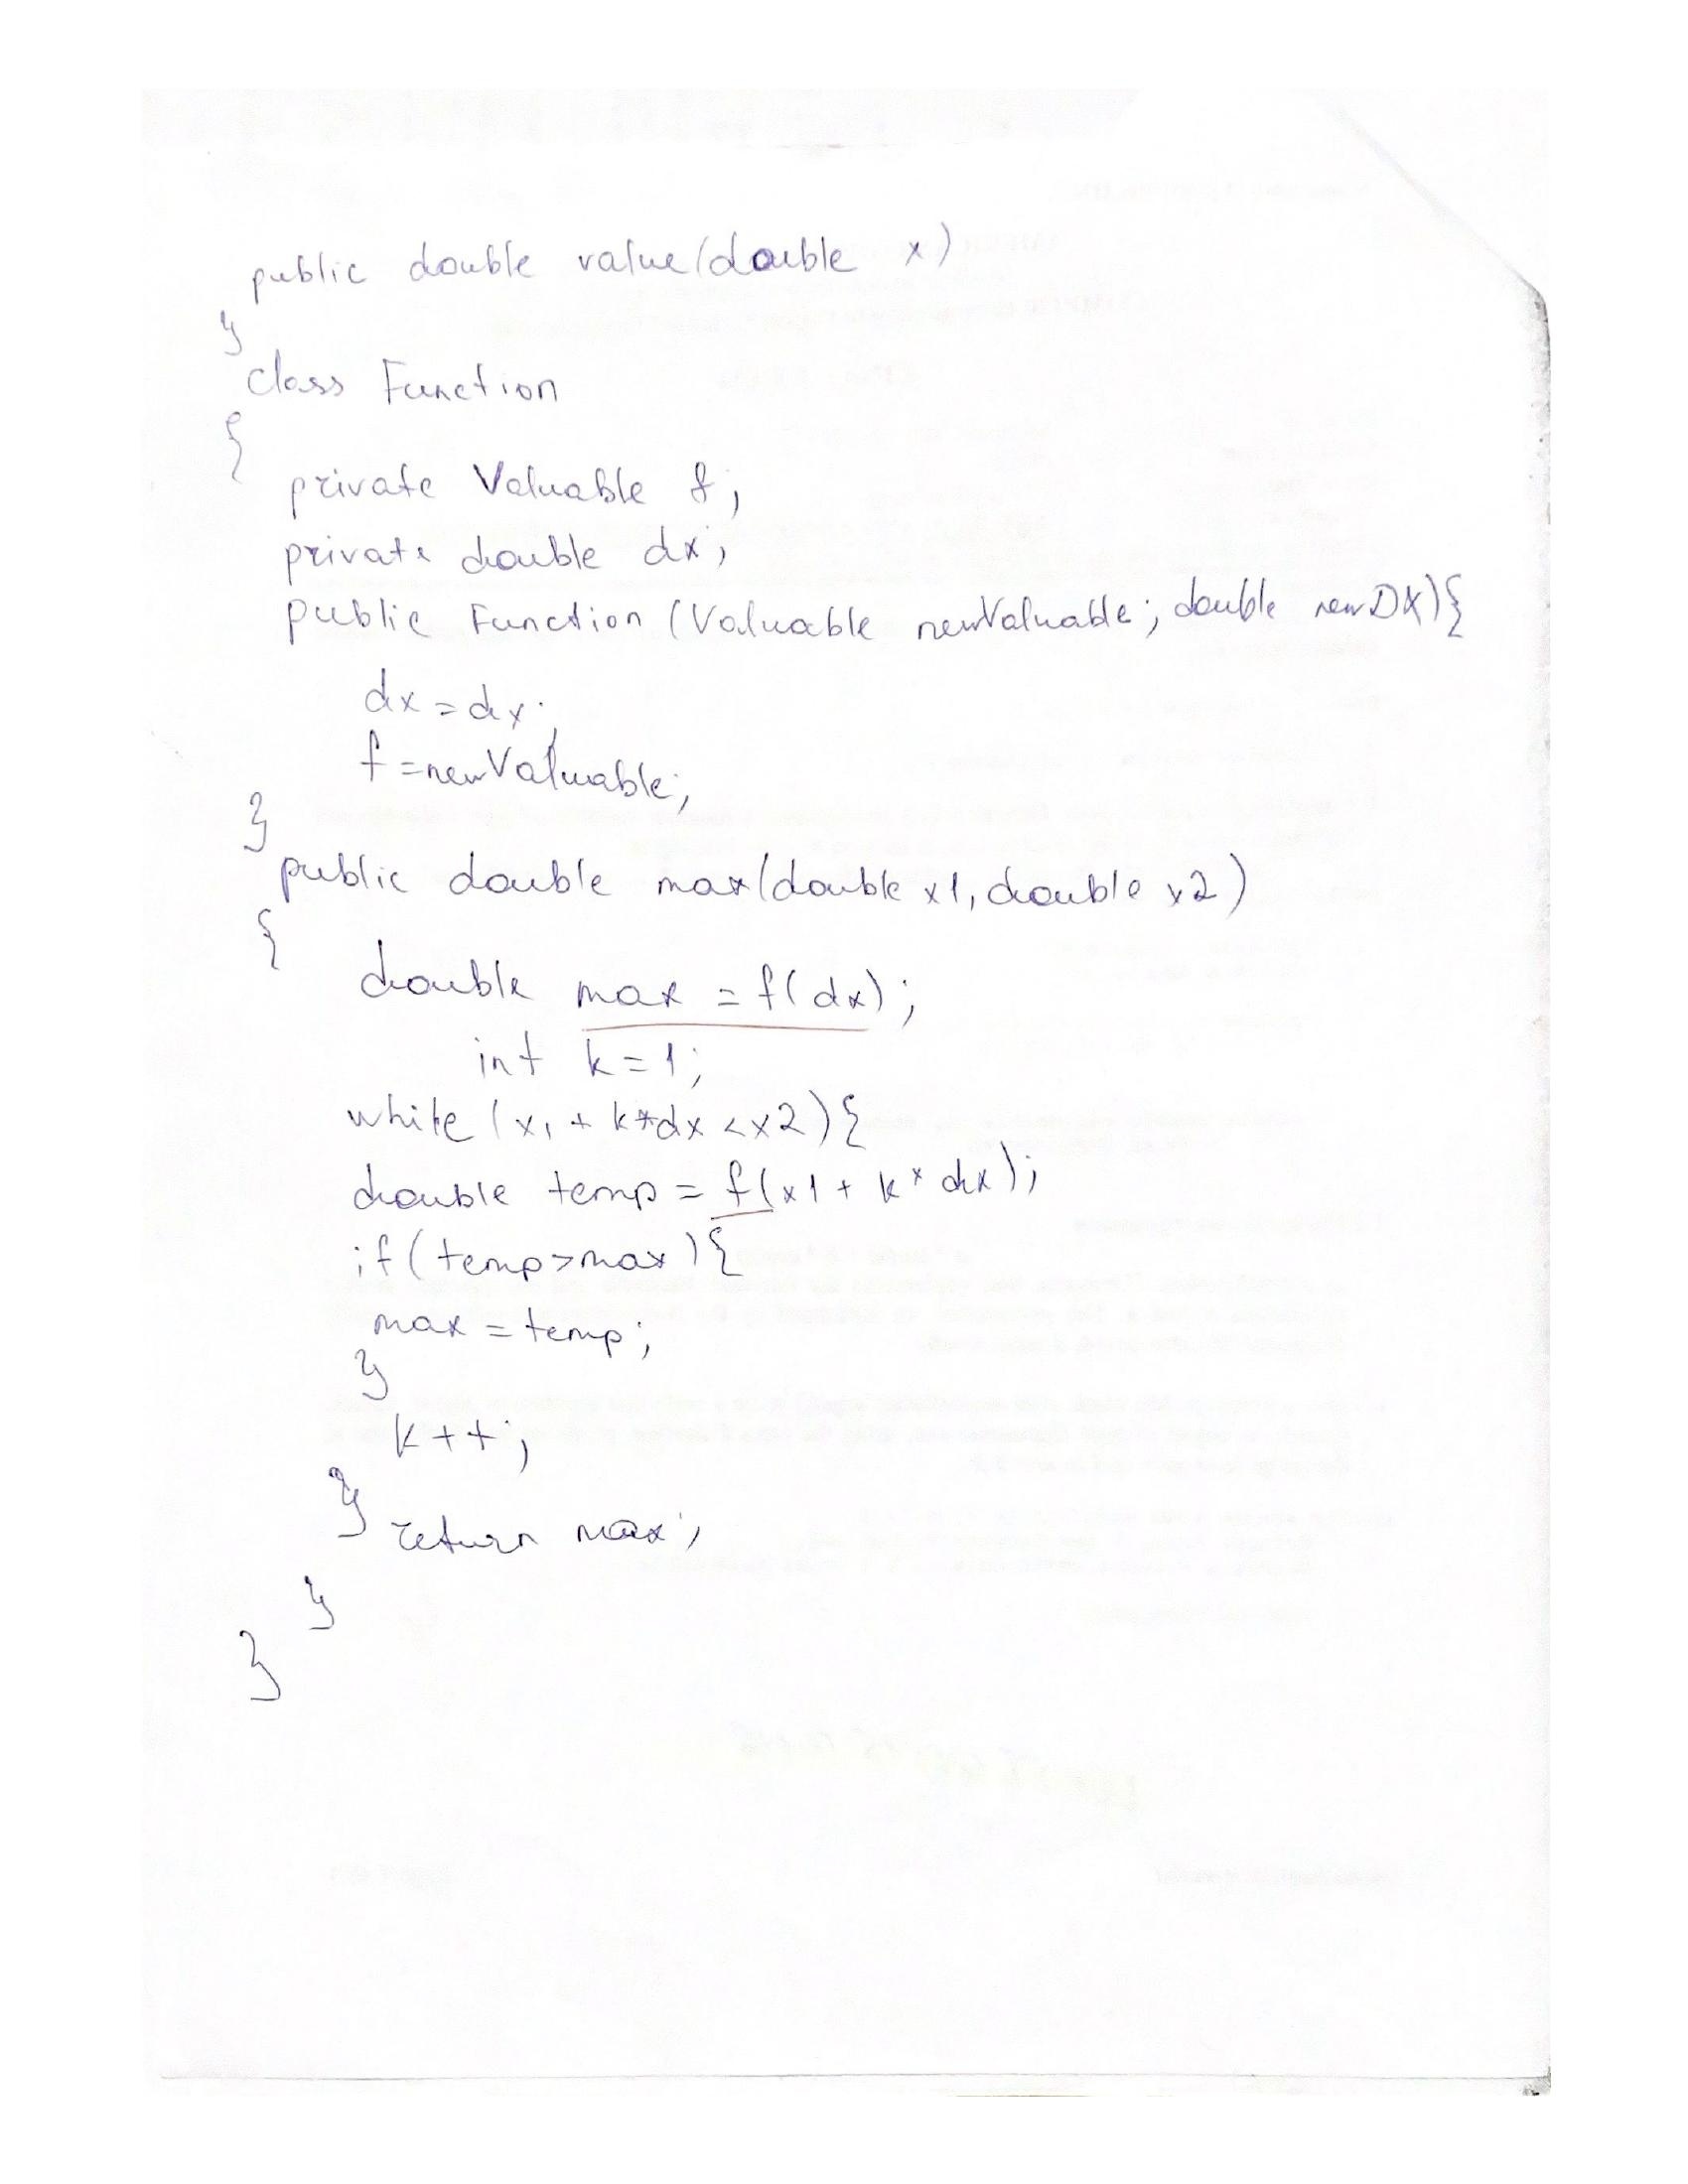 public double value(double x)
}
class Function
{
private Valuable f;
private double dx;
public Function (Valuable newValuable; double newDX){
dx = dx;
f = newValuable;
}
public double max(double x1, double x2)
{
double max = f(dx);
int k = 1;
while (x1 + k*dx < x2){
double temp = f(x1 + k* dx);
if (temp>max){
max = temp;
}
k++;
} return max;
}
}